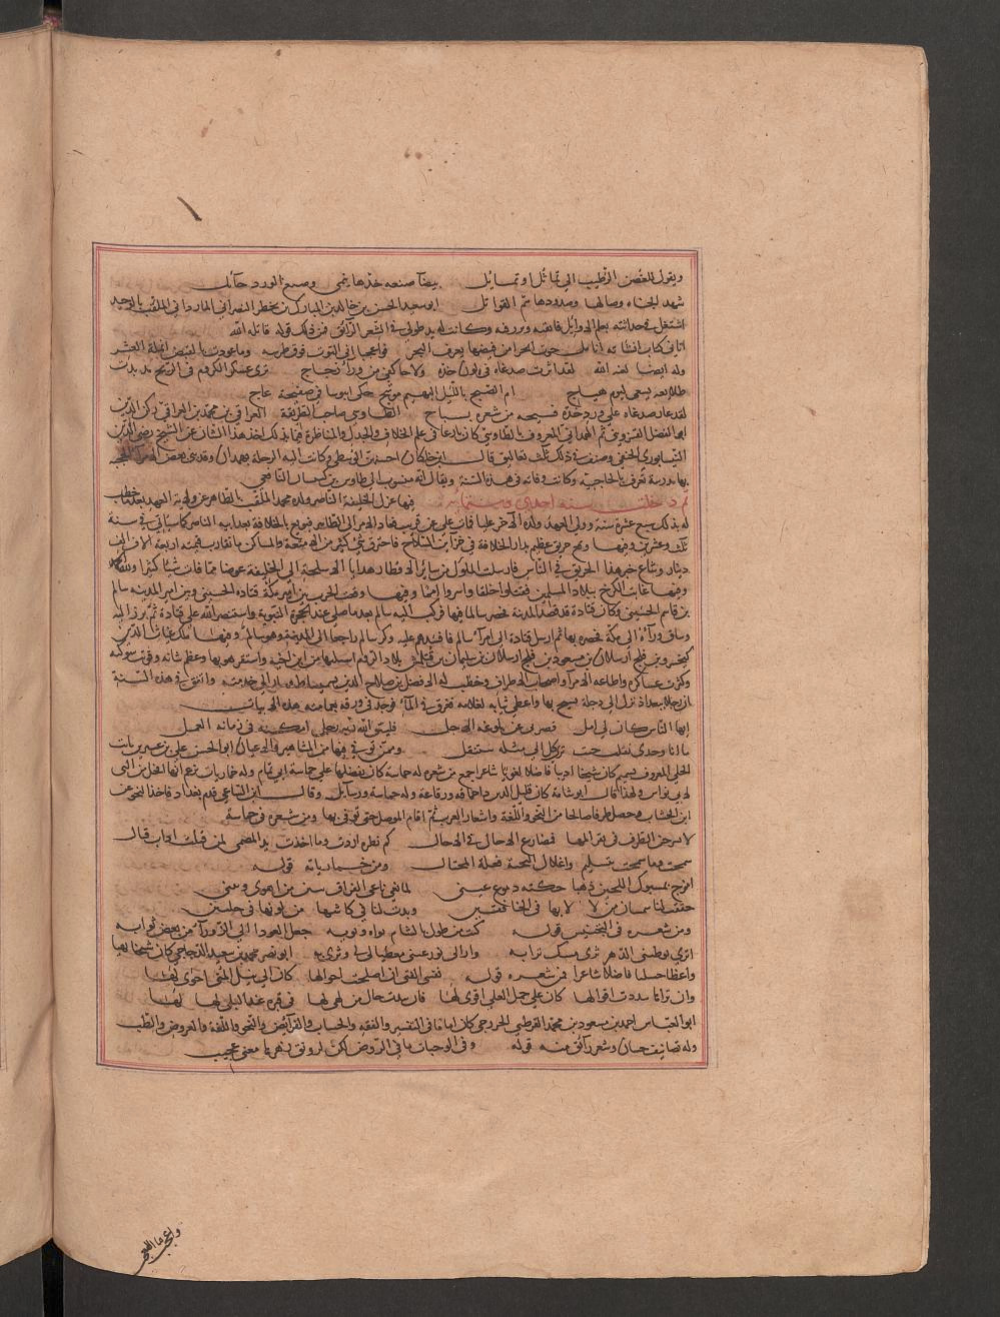 ويقول للغصن الرطيب الى تمايل وتمايل بيعنا صنعه خدها يحمى وصبغ الورد حائل
شهد الجناه وصالها وصدودها سم القواتل ابو سعيد الحسن بن خالد بن المبارك بن محظر النصراني المارداني الملقب بالوحيد
اشتغل في حداثته بعلم الاوائل فاتقنه وبرز فيه وكانت له يد طولى في الشعر الرائق فمن ذلك قوله قاتله الله
اتاني كتاب انشاته انامل حوت ابحرا من فيضها يغرق البحر فواعجبا انى التوت فوق طرسه وما عودت بالقبض انمله العشر
وله ايضا لعنه الله لقد اثرت صدغاه في لون خده ولاحا كفى من وراء زجاج ترى عسكرا للروم في الزنج قد بدت
طلائعه يسعى ليوم هياج ام الصبح بالليل البهيم موشح حكى ابنوسا في صفيحة عاج
لقد غار صدغاه على ورد خده فسيجه من شعره بسياج الطاوسي صاحب الطريقة العراقي بن محمد بن العراقي ركن الدين
ابو الفضل القزويني ثم الهمداني المعروف بالطاوسي كان بارعا في علم الخلاف والجدل والمناظرة قيما بذلك اخذ هذا الشان عن الشيخ رضي الدين
النيسابوري الحنفي وصنف في ذلك ثلث تعاليق قال ابن خلكان احسنهن الوسطى وكانت اليه الرحلة بهمدان وقد بنى بعض
بها مدرسة تعرف بالحاجبية وكانت وفاته في هذه السنة ويقال انه منسوب الى طاوس بن كيسان التابعي
ثم دخلت سنة احدى وستمائة فيها عزل الخليفة الناصر ولده محمد الملقب بالظاهر عن ولاية العهد بعد ما خطب
له بذلك سبع عشرة سنة وولى العهد ولده الاخر عليا فمات علي عن قريب فعاد الامر الى الظاهر فبويع بالخلافة بعد ابيه الناصر كما سياتي في سنة
ثلث وعشرين وفيها وقع حريق عظيم بدار الخلافة في خزاين السلاح فاحترق شي كثير من الامتعة والمساكن ما يقارب قيمته اربعة الاف الف
دينار وشاع خبر هذا الحريق في الناس فارسلت الملوك من سائر الاقطار هدايا الاسلحة الى الخليفة عوضا عما فات شيئا كثيرا
وفيها عاثت الكرج ببلاد المسلمين فقتلوا خلقا واسروا امما وفيها وقعت الحرب بين امير مكة قتادة الحسيني وبين امير المدينه سالم
بن قاسم الحسيني وكان قتادة قد قصد المدينة فحصر سالما فيها فركب اليه سالم بعد ما صلى عند الحجرة النبوية واستنصر الله على قتادة ثم برز اليه
وساق وراءه الى مكة فحصره بها ثم ارسل قتادة الى امراء سالم فافسدهم عليه وكر سالم راجعا الى المدينة وهو سالم وفيها ملك غياث الدين
كيخسرو بن قلج ارسلان بن مسعود بن قلج ارسلان بن سليمان بن قتلمش بلاد الروم استلبها من ابن اخيه واستقر هو بها وعظم شانه وقويت شوكته
وكثرت عساكره واطاعه الامراء واصحاب الاطراف وخطب له الافضل بن صلاح الدين بسميساط وسار الى خدمته واتفق في هذه السنة
ان رجلا ببغداد نزل الى دجلة يسبح بها واعطى ثيابه لغلامه فغرق في الماء فوجد في ورقه بعمامته هذه الابيات
ايها الناس كان لي امل قصر بي عن بلوغه الاجل فليتق الله ربه رجل امكنه في زمانه العمل
ما انا وحدي نقلت حيث ترى كل الى مثله سينتقل وممن توفي فيها من المشاهير والاعيان ابو الحسن علي بن عنتر بن ثابت
الحلي المعروف بشميم كان شيخا اديبا فاضلا لغويا شاعرا جمع من شعره له حماسة كان يفضلها على حماسة ابي تمام وله خمريات يزعم انها افحل من التي
لابي نواس ولهذا قال ابو شامة كان قليل الدين ذا حماقة ورقاعة وله حماسة ورسايل وقال ابن الساعي قدم بغداد فاخذ النحو عن
ابن الخشاب وحصل طرفا صالحا من النحو واللغة واشعار العرب ثم اقام بالموصل حتى توفي بها ومن شعره في حماسة
لا تسرحن الطرف في بقر المها فمصارع الاجال في الاجال كم نظرة اردت وما اخذت يد المصمى لمن قتلت اداة قتال
سمحت وما سمحت بتسليم واغلال التحية فعلة المحتال ومن خمرياته قوله
امزج بمسبوك اللجين ذهبا حكته دموع عيني لما نعى ناعي الفراق ببين من اهوى وبيني
خفقت لنا شمسان من لالائها في الخافقين وبدت لنا في كاسها من لونها في حلتين
ومن شعره في التجنيس قوله ليت من طول بالشام نواه وثوى به جعل العود الى الزوراء من بعض ثوابه
اترى يوطئني الدهر ثرى مسك ترابه وارانى نور عيني موطيا لي وثرى به ابو نصر محمد بن سعيد الدجاجي كان شيخا بهيا
واعظا حنبليا فاضلا شاعرا فمن شعره قوله نفسي الفتى ان اصلحت احوالها كان الى نيل المنى احوى لها
وان تراها سددت اقوالها كان على حمل العلى اقوى لها فان تبدت حال من لهى لها في قبره عند البلى لها لها
ابو العباس احمد بن مسعود بن محمد القرطبي الخزرجي كان اماما في التفسير والفقه والحساب والفرائض والنحو واللغة والعروض والطب
وله تصانيف حسان وشعر رائق منه قوله وفي الوجنات ما في الروض لكن لرونق زهرها معنى عجيب
واعجب ما التعجب